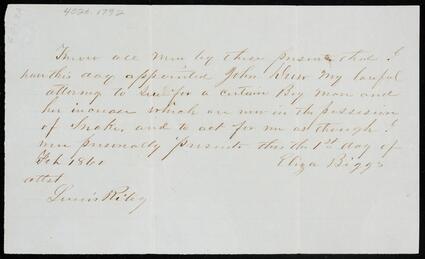 4026.1792
Know all men by these presents that I
have this day appointed John Drew my lawful
attorney to sue for a certain Boy man and
her increase which are now in the possession
of Snake, and to act for me as though I
were personally present this the 1st day of
Feb 1860
Eliza Biggs
attest
Lewis Riley